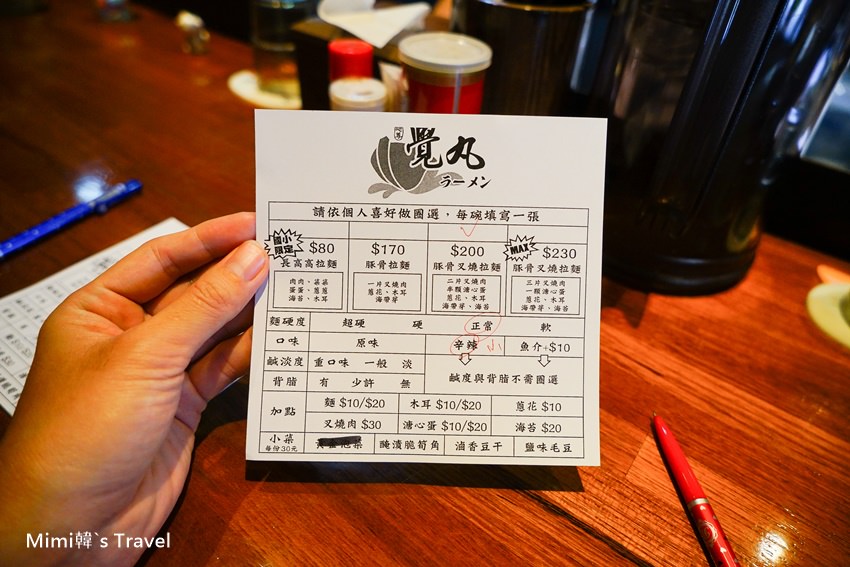 覺丸
ラーメン
請依個人喜好做圈選，每碗填寫一張
國小限定 $80 $170 $200 MAX $230
長高高拉麵 豚骨拉麵 豚骨叉燒拉麵 豚骨叉燒拉麵
肉肉、菜菜 一片叉燒肉 二片叉燒肉 三片叉燒肉
蛋蛋、蔥蔥 蔥花、木耳 半顆溏心蛋 一顆溏心蛋
海苔、木耳 海帶芽 蔥花、木耳 蔥花、木耳
海帶芽、海苔 海帶芽、海苔
麵硬度 超硬 硬 正常 軟
口味 原味 辛辣 小 魚介+$10
鹹淡度 重口味 一般 淡 鹹度與背脂不需圈選
背脂 有 少許 無
加點 麵 $10/$20 木耳 $10/$20 蔥花 $10
叉燒肉 $30 溏心蛋 $10/$20 海苔 $20
小菜 每份30元 醃漬脆筍角 滷香豆干 鹽味毛豆
Mimi韓`s Travel